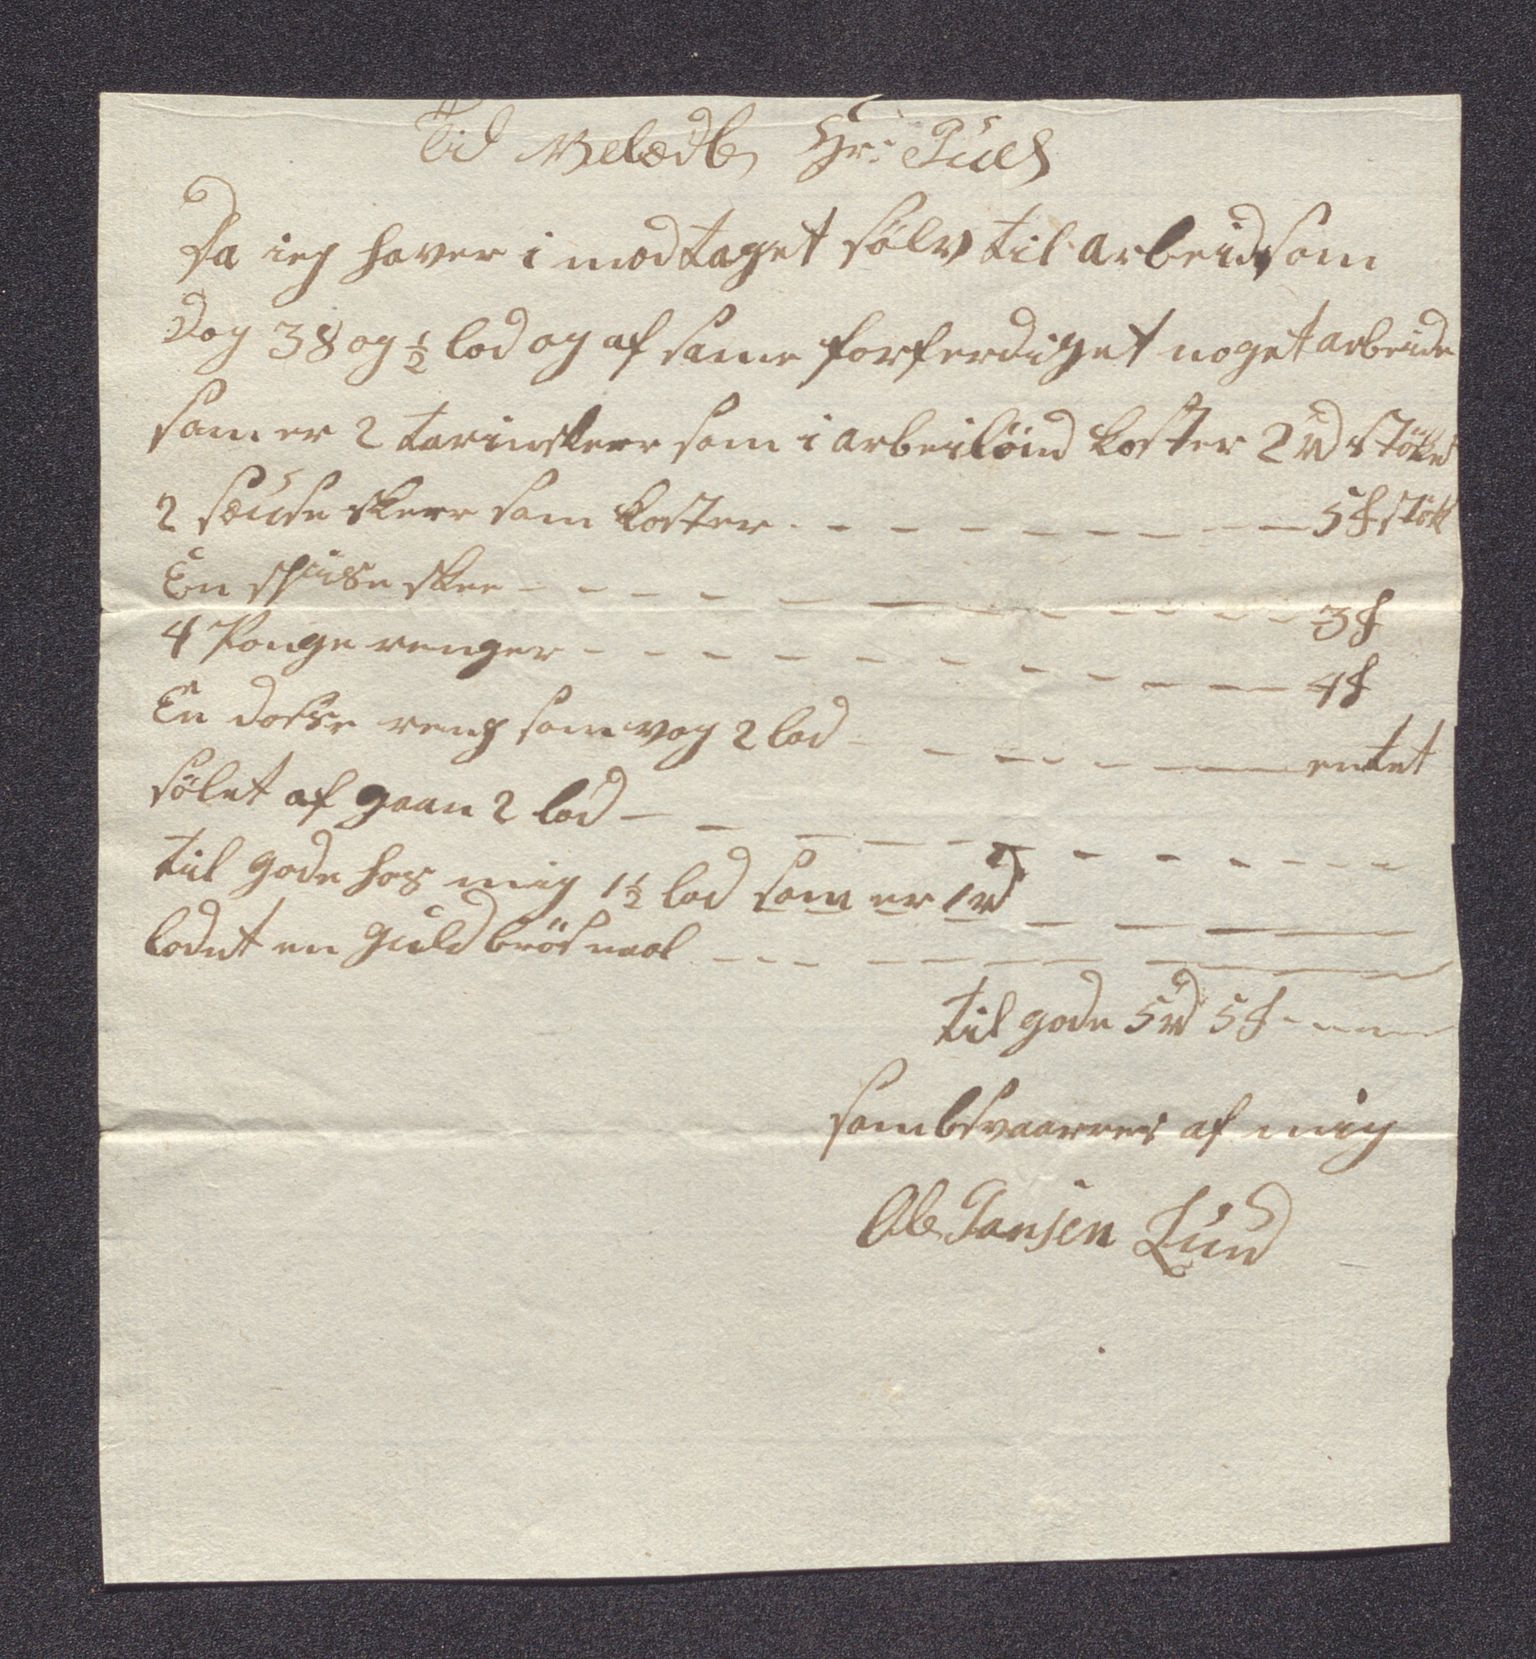 Til Velædle Hr: Juel
Da ieg haver i modtaget sølv til arbeid som
Vog 38 og ½ lod og af same forferdiget noget arbeide
som er 2 tarinskeer som i arbeilöind koster 2 rd støket
2 søuse skeer som koster - - - - - - 5 ß støk
En spiise skee - - - - - - - - - 3 ß
4 Ponge renger - - - - - - - - 4 ß
En dosse reng som vog 2 lod - - - - - entet
sölet af gaan 2 lod - - - - - - - - -
til gode hos mig 1½ lod som er 1 rd - - - -
lodet en guld bröst naal - - - - - - - -
til gode 5 rd 5 ß - - - -
som bsvaarres af mig
Ole Jansen Lund